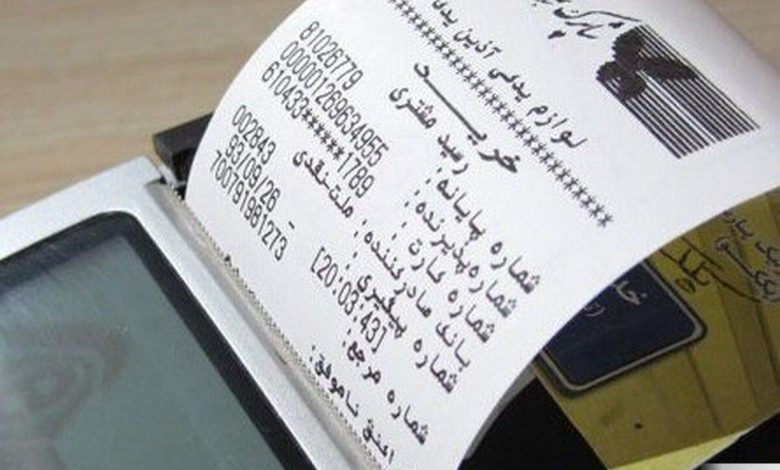 لوازم یدکی آذین یدک
********************************
خرید
رسید مشتری
شماره پایانه: 81026779
شماره پذیرنده: 000001269634955
شماره کارت: 610433******1789
بانک صادرکننده: ملت-نقدی
شماره پیگیری: 002843
93/09/26 - [20:03:43]
شماره مرجع: 700791981273